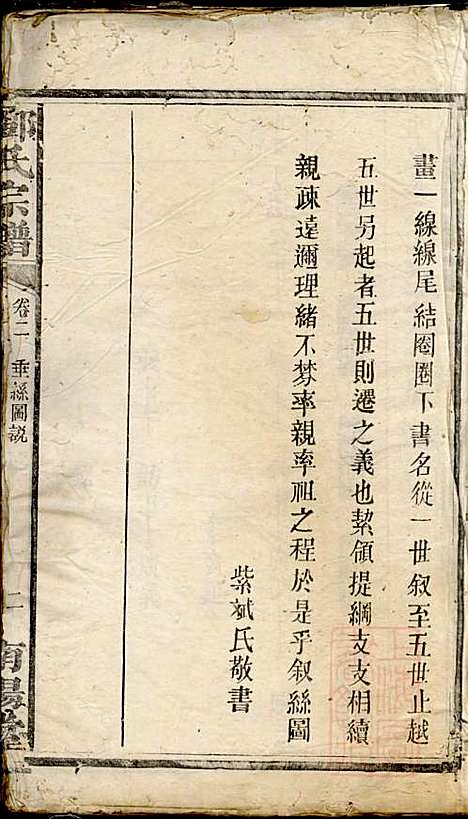 畫一線線尾結圈圈下書名從一世叙至五世止越
五世另起者五世則遷之義也挈領提綱支支相續
親疎遠邇理緒不棼率親率祖之程於是乎叙絲圖
紫斌氏敬書
鄧氏宗譜
卷二
垂絲圖說
二
南陽堂